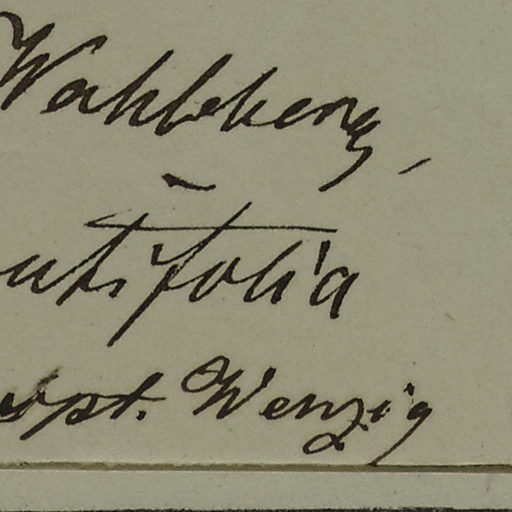 Wahlberg,
utifolia
spt. Wenzig